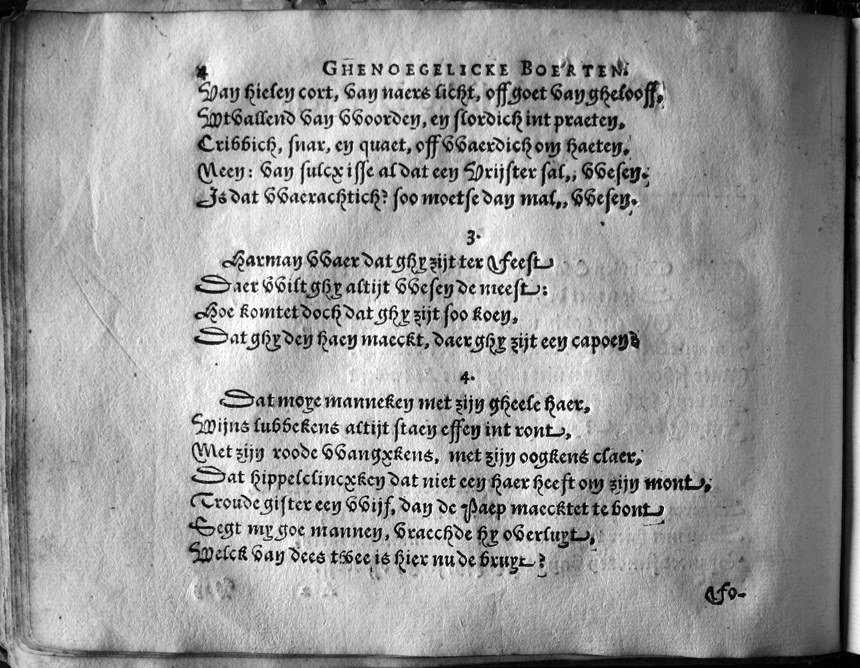 4 GHENOEGELICKE BOERTEN.
Van hielen cort, van naers licht, off goet van ghelooff,
Wtvallend van vvoorden, en slordich int praeten,
Cribbich, snar, en quaet, off vvaerdich om haeten,
Neen: van sulcx isse al dat een Vrijster sal,, vvesen.
Is dat vvaerachtich? soo moetse dan mal,, vvesen.
3.
Harman vvaer dat ghy zijt ter feest
Daer vvilt ghy altijt vvesen de meest:
Hoe komtet doch dat ghy zijt soo koen,
Dat ghy den haen maeckt, daer ghy zijt een capoen?
4.
Dat moye manneken met zijn gheele haer,
Wijns lubbekens altijt staen effen int ront,
Met zijn roode vvangxkens, met zijn oogkens claer,
Dat hippelclincxken dat niet een haer heeft om zijn mont,
Troude gister een vvijf, dan de Paep maecktet te bont
Segt my goe mannen, vraechde hy overluyt,
Welck van dees twee is hier nu de bruyt?
fo-